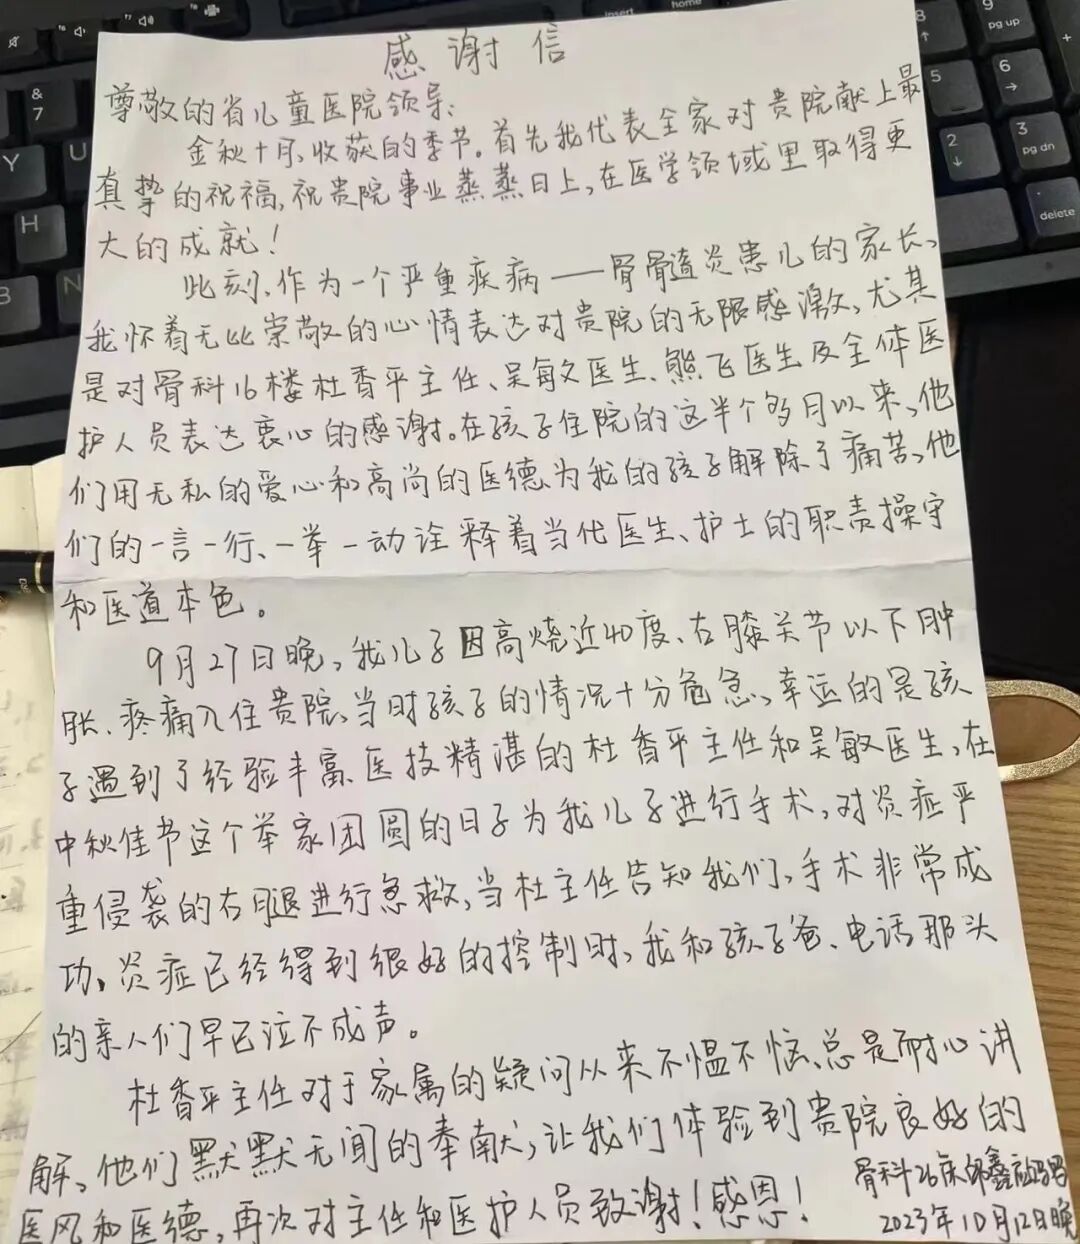 感谢信
尊敬的省儿童医院领导：
金秋十月、收获的季节。首先我代表全家对贵院献上最
真挚的祝福，祝贵院事业蒸蒸日上，在医学领域里取得更
大的成就！
此刻、作为一个严重疾病——骨骨遀炎患儿的家长、
我怀着无比崇敬的心情表达对贵院的无限感激、尤其
是对骨科16楼杜香平主任、吴敏文医生、熊飞医生及全体医
护人员表达衷心的感谢。在孩子住院的这半个多月以来、他
们用无私的爱心和高尚的医德为我的孩子解除了痛苦、他
们的一言一行、一举一动诠释着当代医生、护士的职责操守
和医道本色。
9月27日晚，我儿子因高烧近40度、右膝关节以下肿
胀、疼痛入住贵院、当时孩子的情况十分危急、幸运的是孩
子遇到了经验丰富、医技精湛的杜香平主任和吴敏医生，在
中秋佳节这个举家团圆的日子为我儿子进行手术，对炎症严
重侵袭的右腿进行急救，当杜主任告知我们、手术非常成
功、炎症已经得到很好的控制时，我和孩子爸、电话那头
的亲人们早已泣不成声。
杜香平主任对于家属的疑问从来不愠不恼、总是耐心讲
解、他们默默无闻的奉献，让我们体验到贵院良好的
医风和医德，再次对主任和医护人员致谢！感恩！
骨科26床鑫妈妈
2023年10月12日晚
&
7
Y
U
H
B
insert
home
8
9
pg up
5
6
2
3
pg dn
delete